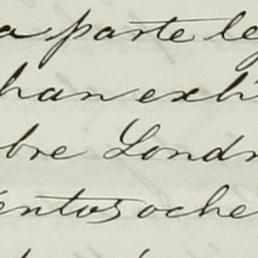 a parte le
han exhi
bre Londr
entos oche